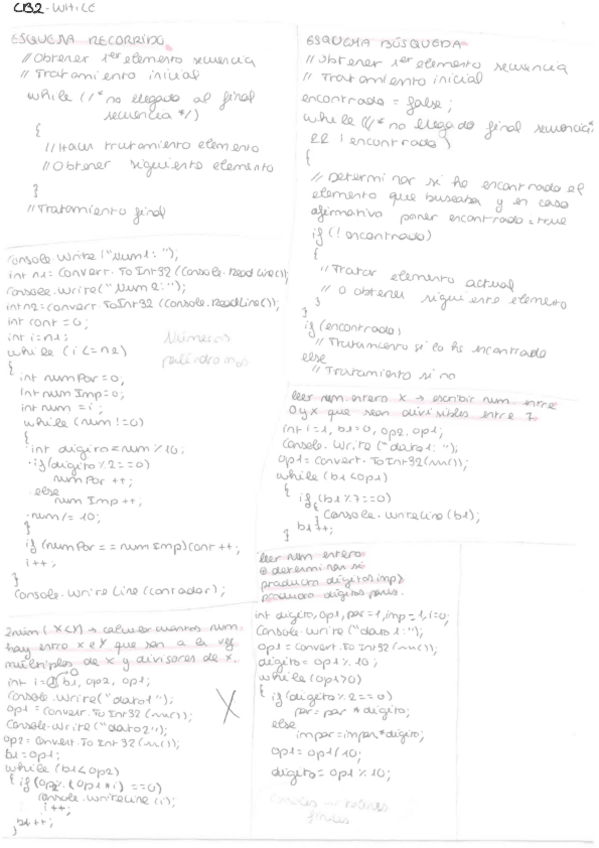 CB2 - WHILE
ESQUEMA RECORRIDO
// Obtener 1er elemento secuencia
// Tratamiento inicial
while (/* no llegado al final
secuencia */)
{
// Hacer tratamiento elemento
// Obtener siguiente elemento
}
// Tratamiento final
ESQUEMA BÚSQUEDA
// Obtener 1er elemento secuencia
// Tratamiento inicial
encontrado = false;
while (/* no llegado final secuencia*/
&& !encontrado)
{
// Determinar si he encontrado el
elemento que buscaba y en caso
afirmativo poner encontrado = true
if (!encontrado)
{
// Tratar elemento actual
// o obtener siguiente elemento
}
}
if (encontrado)
// Tratamiento si lo he encontrado
else
// Tratamiento si no
Console.Write("Num1: ");
int n1 = Convert.ToInt32(Console.ReadLine());
Console.Write("Num2:");
int n2 = Convert.ToInt32(Console.ReadLine());
int cont = 0;
int i = n1;
while (i <= n2)
{
int numPar = 0;
int numImp = 0;
int num = i;
while (num != 0)
{
int digito = num % 10;
if (digito % 2 == 0)
numPar ++;
else
numImp ++;
num /= 10;
}
if (numPar == numImp) cont ++;
i ++;
}
Console.WriteLine(contador);
Números
palíndromos
leer num entero x → escribir num. entre
0 y x que sean divisibles entre 7
int i = 1, b1 = 0, op2, op1;
Console.Write("dato1: ");
op1 = Convert.ToInt32( );
while (b1 < op1)
{ if (b1 % 7 == 0)
{ Console.WriteLine(b1);
}
b1 ++;
}
leer num entero
determinar si
producto dígitos imp
producto dígitos pares.
int digito, op1, par = 1, imp = 1, i = 0;
Console.Write("dato1:");
op1 = Convert.ToInt32( );
digito = op1 % 10;
while (op1 > 0)
{ if (digito % 2 == 0)
par = par * digito;
else
impar = impar * digito;
op1 = op1 / 10;
digito = op1 % 10;
2 num (x < y) → calcular cuantos num.
hay entre x e y que sean a la vez
múltiplos de x y divisores de x.
int i = b1, op2, op1;
Console.Write("dato1");
op1 = Convert.ToInt32( );
Console.Write("dato2");
op2 = Convert.ToInt32( );
b1 = op1;
while (b1 < op2)
{ if (op2 % (op1 * i) == 0)
Console.WriteLine(i);
i ++;
b1 ++;
}
X